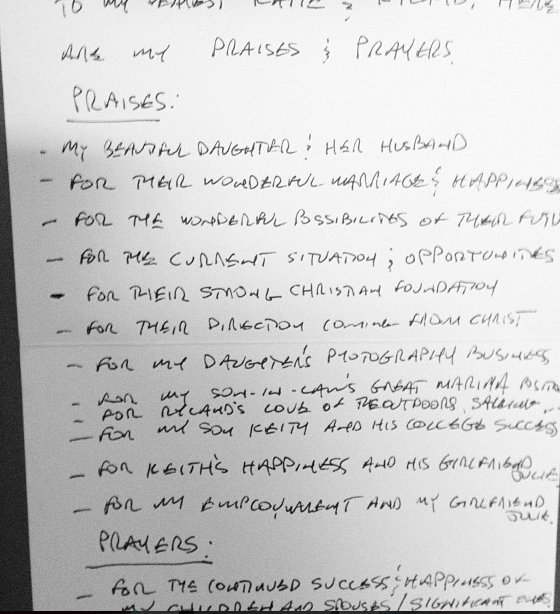 TO MY DEAREST KATIE & HERE
ARE MY PRAISES & PRAYERS.
PRAISES:
- MY BEAUTIFUL DAUGHTER & HER HUSBAND
- FOR THEIR WONDERFUL MARRIAGE & HAPPINESS
- FOR THE WONDERFUL POSSIBILITES OF THEIR FUTU
- FOR THE CURRENT SITUATION & OPPORTUNITES
- FOR THEIR STRONG CHRISTIAN FOUNDATION
- FOR THEIR DIRECTION COMING FROM CHRIST
- FOR MY DAUGHTER'S PHOTOGRAPHY BUSINESS
- FOR MY SON-IN-LAW'S GREAT MARINA POSITIO
- FOR LOVE OF THE OUTDOORS,
- FOR MY SON KEITH AND HIS COLLEGE SUCCESS
- FOR KEITH'S HAPPINESS AND HIS GIRLFRIEND
JULIE
- FOR MY EMPLOYMENT AND MY GIRLFRIEND
JULIE.
PRAYERS:
- FOR THE CONTINUED SUCCESS & HAPPINESS OF
MY CHILDREN AND SPOUSES / SIGNIFICANT